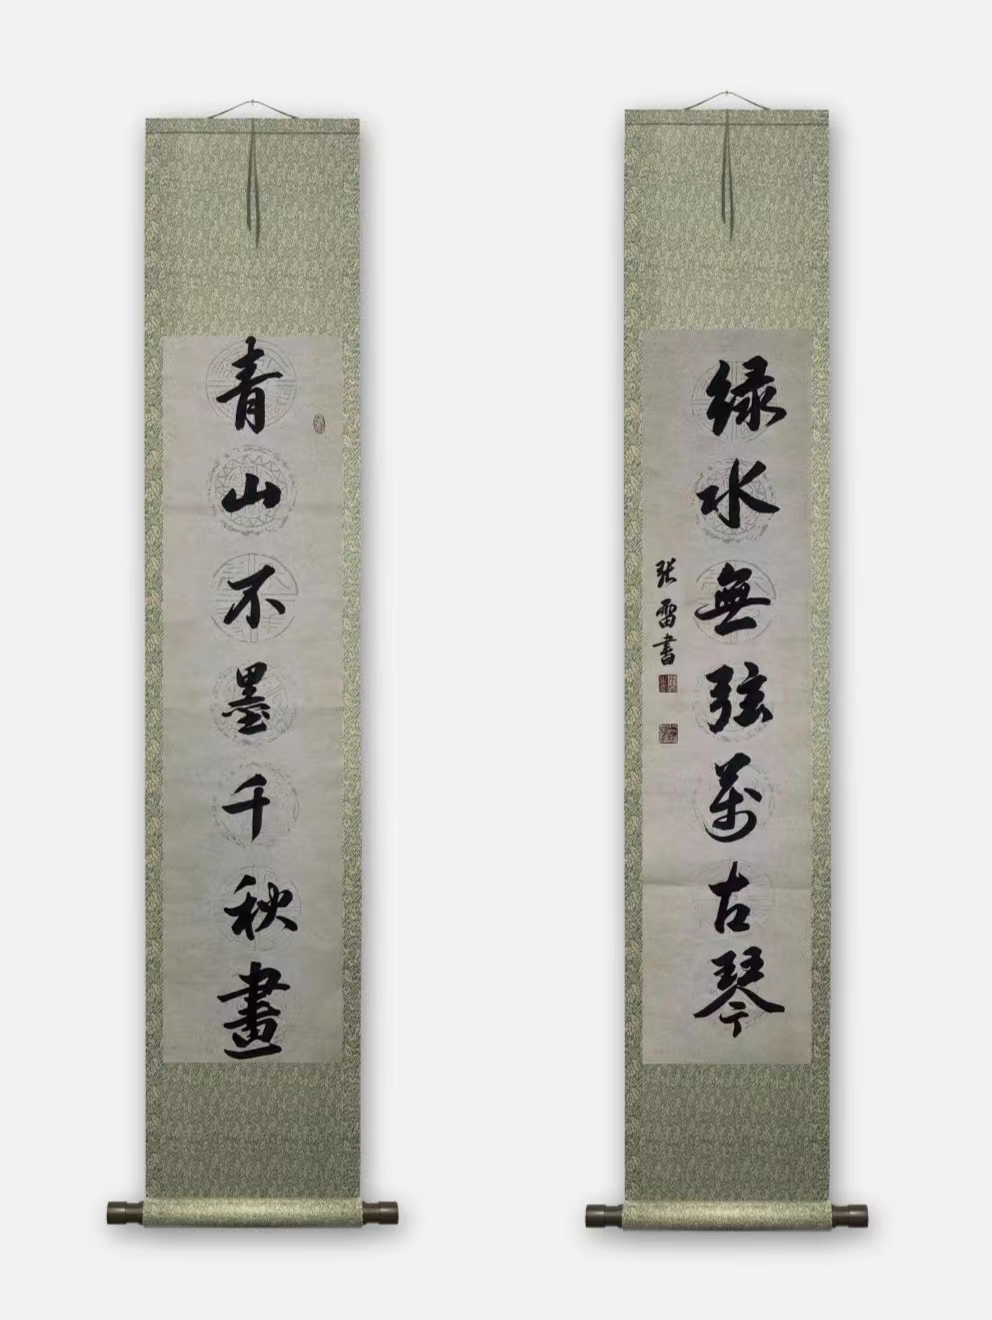 青山不墨千秋畫
绿水無弦萬古琴
张雷書